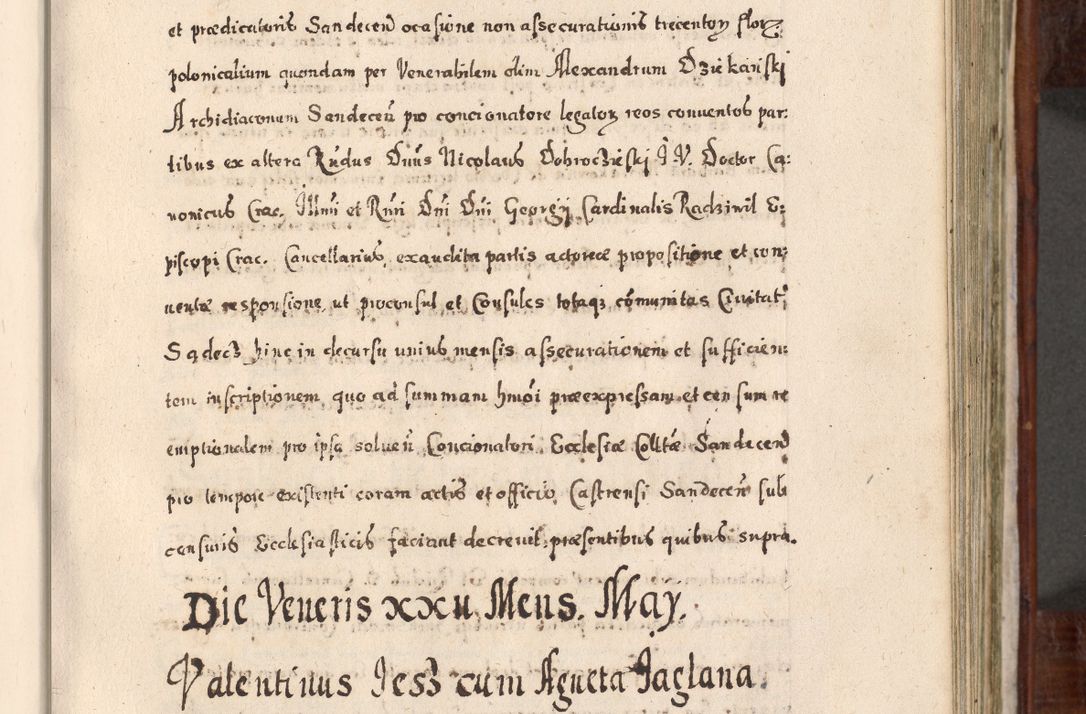 et prædicatoris Sandeceñ ocasione non assecurationis trecentoꝝ floꝝ
polonicalium quondam per Venerabilem olim Alexandrum Dziekański
Archidiaconum Sandeceñ pro concionatore legatoꝝ reos conventos par:
tibus ex altera Rñdus Dnûs Nicolaus Dobroczieski J. V. Doctor Ca:
nonicus Crac. Illmi et Rmi Dñi Dñi Georgij Cardinalis Radziwil E:
piscopi Crac. Cancellarius, exaudita partis actoreæ propositione et con:
ventæ responsione, ut proconsul et Consules totaqз comunitas Civitatis
Sądecz hinc in decursu unius mensis assecurationem et sufficien:
tem inscriptionem quo ad summam hmoi præexpressam et censum re
emptionalem pro ipsa solveñ Concionatori Ecclesiæ Colltæ Sandeceñ
pro tempore existenti coram actis et officio Castrensi Sandeceñ sub
censuris Ecclesiasticis faciant decrevit, præsentibus quibus supra.
Die Veneris xxii Mens. May.
Valentinus Jesz cum Agneta Jaglana.